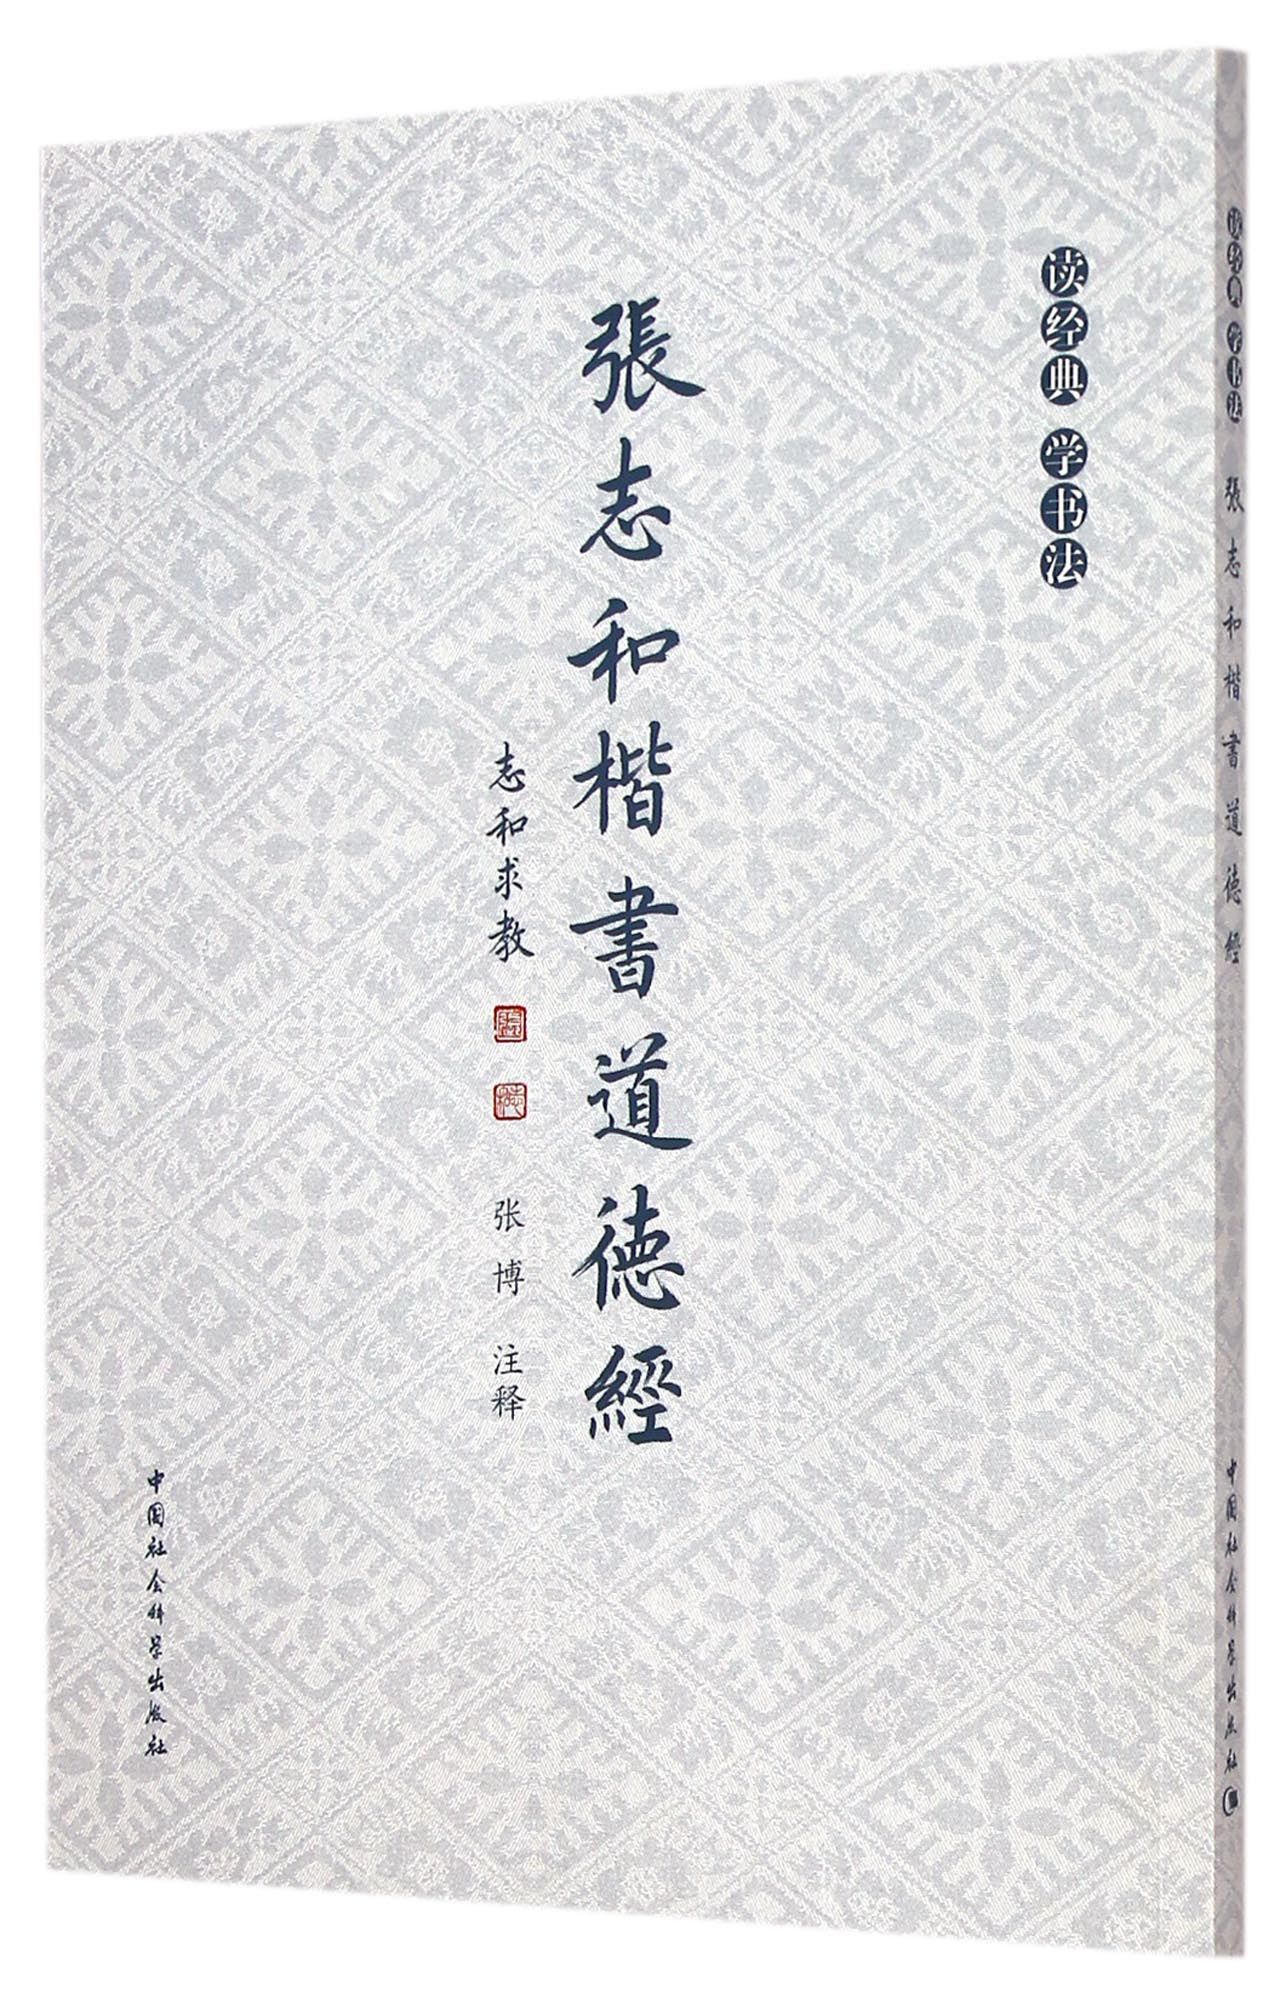 读经典 学书法
張志和楷書道德經
志和求教
张博 注释
中国社会科学出版社
读经典 学书法
張志和楷書道德經
中国社会科学出版社